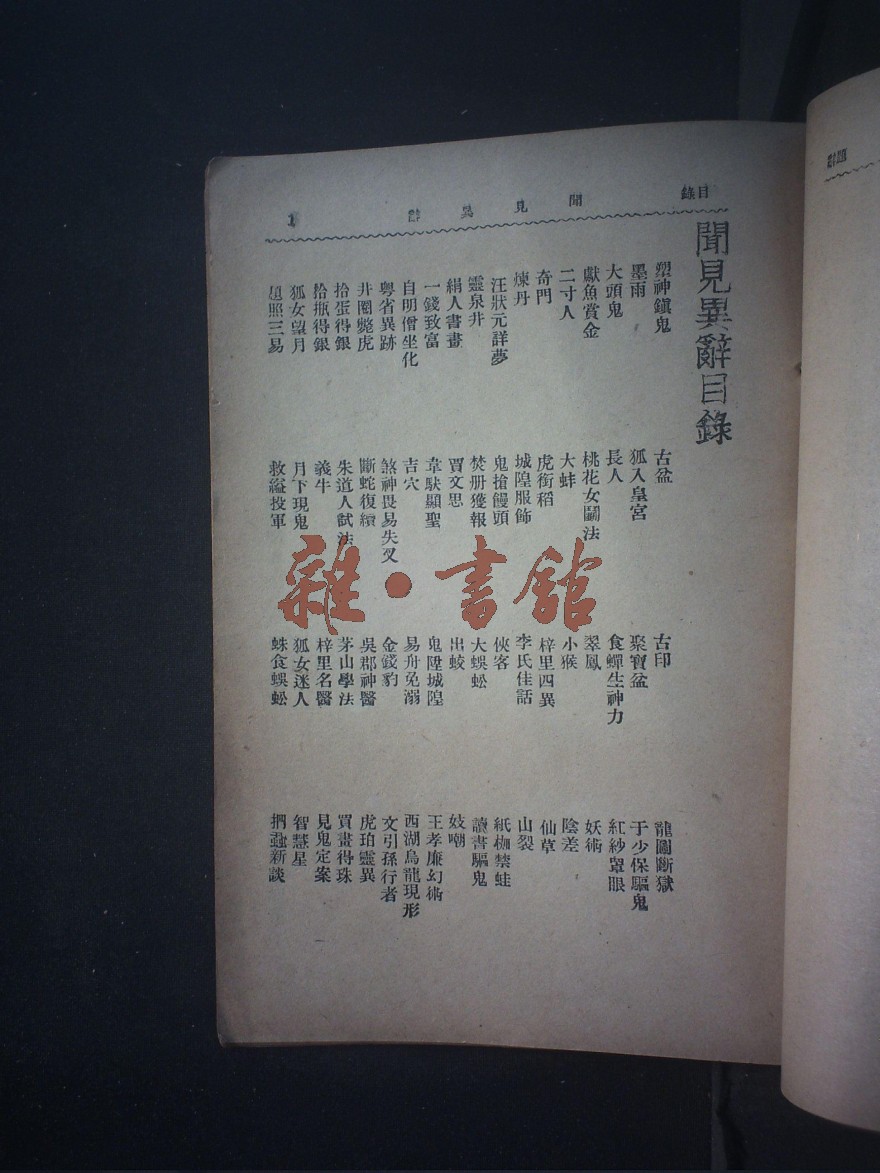 目錄
聞見異辭
1
聞見異辭目錄
塑神鎮鬼　古盆　古印　龍圖斷獄
墨雨　狐入皇宮　聚寶盆　于少保驅鬼
大頭鬼　長人　食蟬生神力　紅紗罩眼
獻魚賞金　桃花女鬭法　翠鳳　妖術
二寸人　大蚌　小猴　陰差
奇門　虎銜稻　梓里四異　仙草
煉丹　城隍服飾　李氏佳話　山裂
汪狀元詳夢　鬼搶饅頭　俠客　紙枷禁蛙
靈泉井　焚册獲報　大蜈蚣　讀書驅鬼
絹人書畫　賈文思　出蛟　妓嘲
一錢致富　韋馱顯聖　鬼陞城隍　王孝廉幻術
自明僧坐化　吉穴　易舟免溺　西湖烏龍現形
粤省異跡　煞神畏易失叉　金錢豹　文引孫行者
井圈斃虎　斷蛇復續　吳郡神醫　虎珀靈異
拾蛋得銀　朱道人試法　茅山學法　買畫得珠
拾瓶得銀　義牛　梓里名醫　見鬼定案
狐女望月　月下現鬼　狐女迷人　智慧星
照三易　救縊投軍　蛛食蜈蚣　捫蝨新談
雜·書館